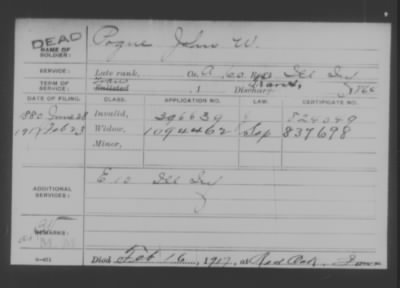 DEAD
NAME OF SOLDIER: Pogue John W.
SERVICE: Late rank, Co. A, 60 Reg't Ill Inf
TERM OF SERVICE: Enlisted , 1 Discharged , 186
DATE OF FILING. CLASS. APPLICATION NO. LAW. CERTIFICATE NO.
1880 June 28 Invalid, 396639 524049
1917 Feb 23 Widow, 1094462 Sep 837698
Minor,
ADDITIONAL SERVICES: E 10 Ill Inf
REMARKS:
Died Feb 16, 1917, at Red Oak, Iowa